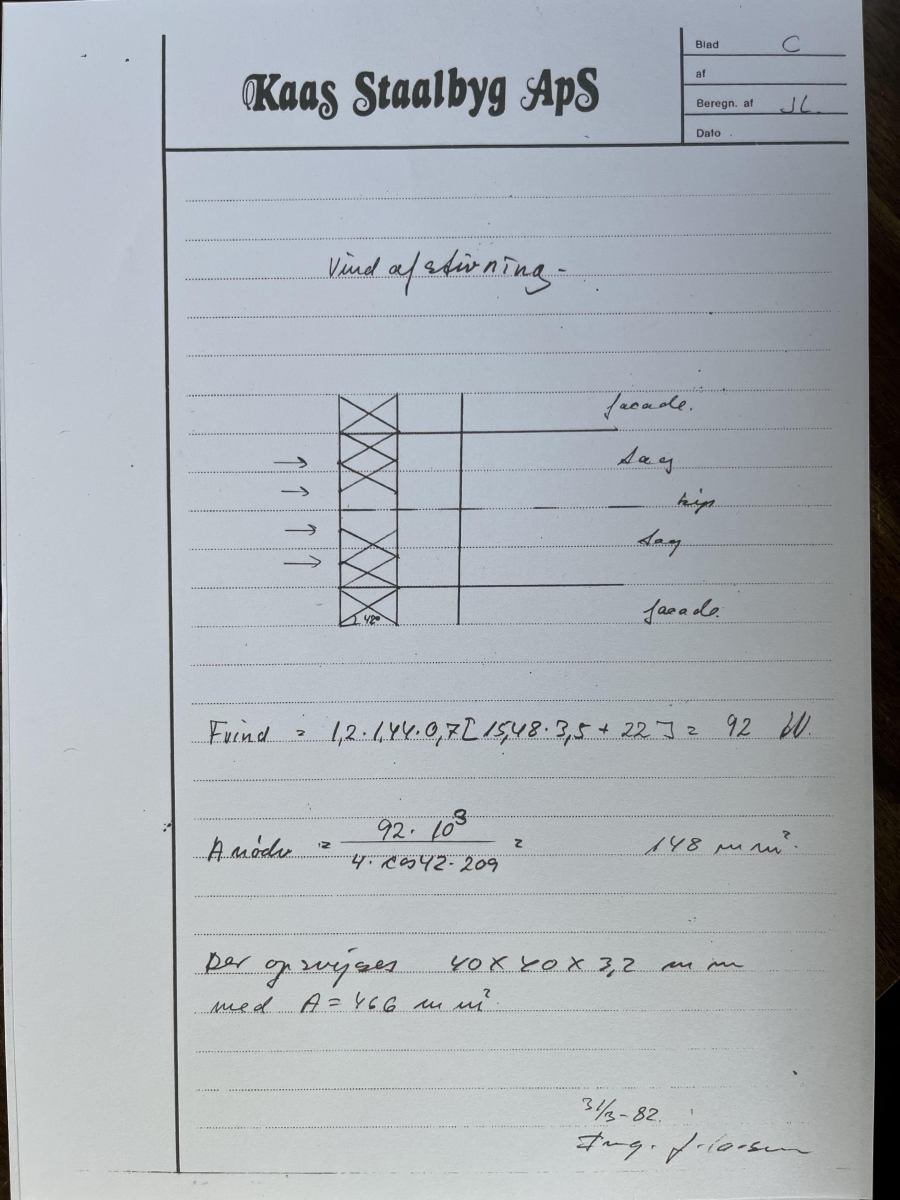 Kaas Staalbyg ApS
Blad C
af
Beregn. af JL.
Dato
Vindafstivning -
facade.
tag
kip
tag
facade.
42°
Fvind = 1,2·1,44·0,7[15,48·3,5 + 22] = 92 kN.
A nødv = 92·10³ / 4·cos42·209 = 148 mm².
Der opsvejses 40×40×3,2 mm
med A = 466 mm².
31/3-82.
Ing.